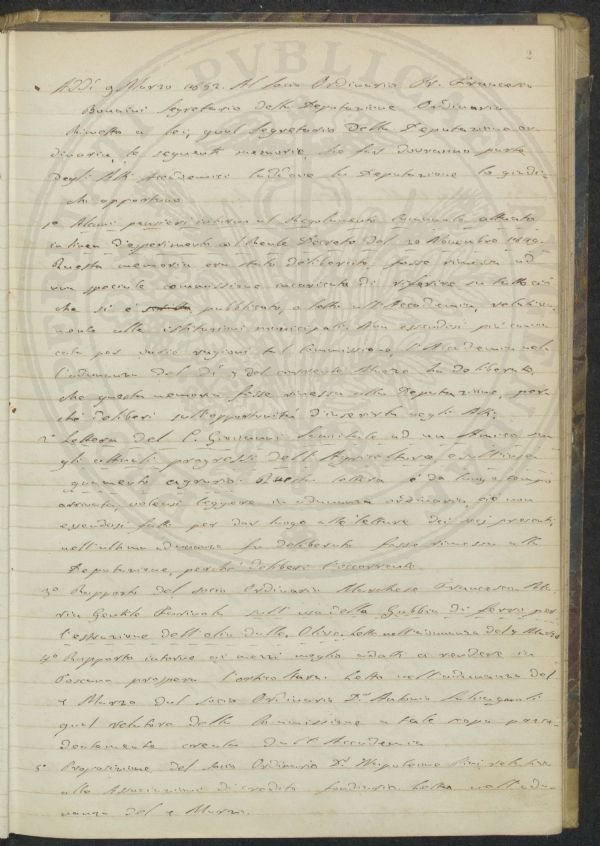 2
Addì 9 Marzo 1852. Al Socio Ordinario Dr. Francesco
Bonaini Segretario della Deputazione Ordinaria
Rimetto a lei, qual Segretario della Deputazione or-
dinaria, le seguenti memorie, che far dovranno parte
degli Atti Accademici laddove la Deputazione lo giudi-
chi opportuno
1º Alcuni pensieri intorno al Regolamento Comunale attivato
in linea d'esperimento col Decreto del 20 Novembre 1849.
Questa memoria era stato deliberato, fosse rimessa ad
una speciale commissione incaricata di riferire su tutto ciò
che si è pubblicato, o letto all'Accademia, relativa-
mente alle istituzioni municipali. Non essendosi più convo-
cata per varie ragioni tal Commissione, l'Accademia nel-
l'adunanza del dì 7 del corrente Marzo ha deliberato,
che questa memoria fosse rimessa alla Deputazione, per-
ché deliberi sull'opportunità d'inserirla negli Atti.
2º Lettera del C. Giovanni ad un Amico su-
gli attuali progressi dell'Agricoltura, e sull'inse-
gnamento agrario. Questa lettera è da lungo tempo
arrivata, volevasi leggere in adunanza ordinaria, ciò non
essendosi fatto per dar luogo alle letture dei soci presenti,
nell'ultima adunanza fu deliberato fosse rimessa alla
Deputazione, perché deliberi l'occorrente.
3º Rapporto del socio Ordinario Marchese Francesco
Gentile Farinola sull'uso della Gabbia di ferro per
l'estrazione dell'olio dalle Olive. Letto nell'adunanza del 7 Marzo
4º Rapporto intorno ai mezzi meglio adatti a rendere in
Toscana prospera l'ostricoltura. Letto nell'adunanza del
7 Marzo dal socio Ordinario Dr. Antonio Salvagnoli
qual relatore della Commissione a tale scopo prece-
dentemente creata dall'Accademia
5º Proposizione del Socio Ordinario Dr. Napoleone Pini relativa
alle Associazioni di credito fondiario letta nell'adu-
nanza del 7 Marzo.